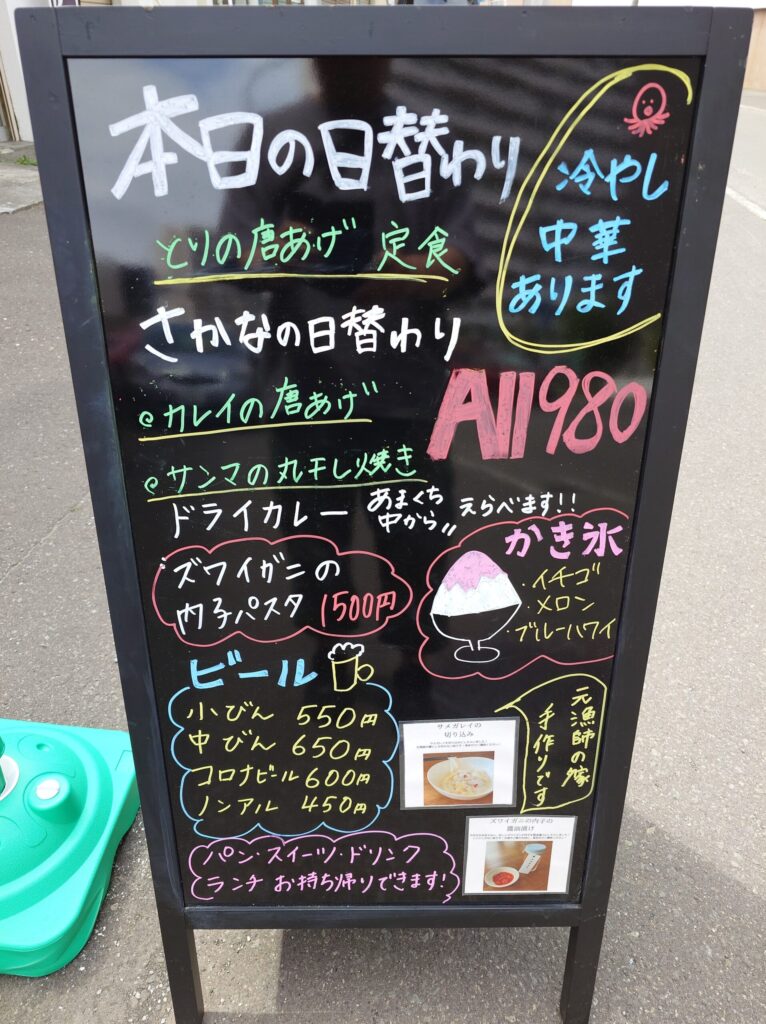 本日の日替わり
冷やし
中華
あります
とりの唐あげ 定食
さかなの日替わり
カレイの唐あげ
サンマの丸干し焼き
All980
ドライカレー あまくち
中から
えらべます!!
ズワイガニの
内子パスタ 1500円
かき氷
・イチゴ
・メロン
・ブルーハワイ
ビール
小びん 550円
中びん 650円
コロナビール 600円
ノンアル 450円
元漁師の嫁
手作りです
サメガレイの
切り込み
ズワイガニの内子の
醤油漬け
パン・スイーツ・ドリンク
ランチ お持ち帰りできます!